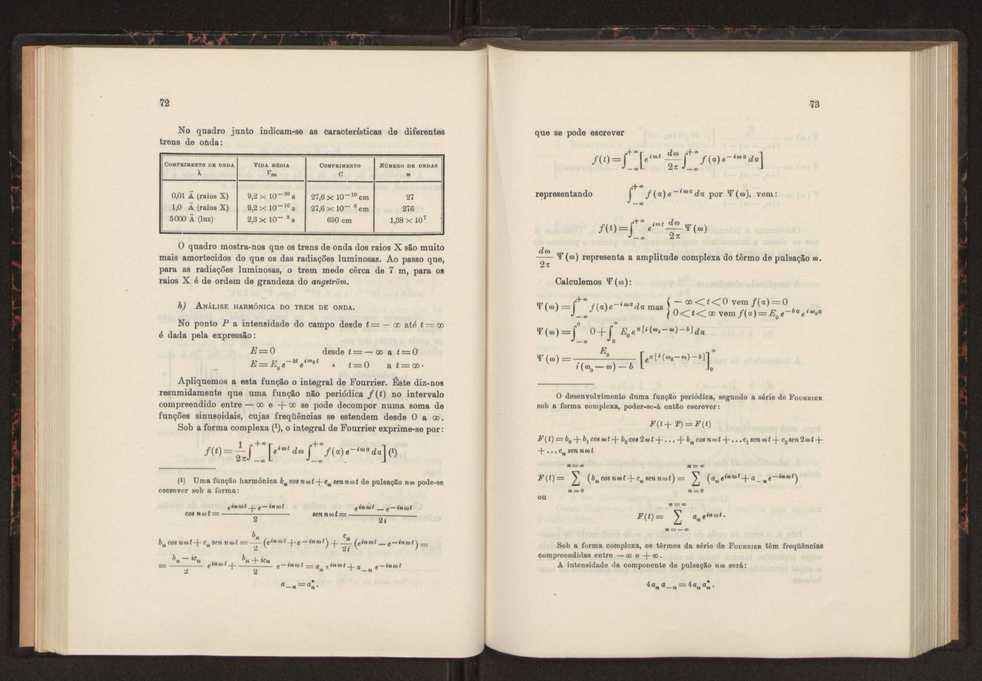 72
No quadro junto indicam-se as características de diferentes
trens de onda:
COMPRIMENTO DE ONDA λ | VIDA MÉDIA τm | COMPRIMENTO C | NÚMERO DE ONDAS n
0,01 Å (raios X) | 9,2 × 10⁻²⁰ s | 27,6 × 10⁻¹⁰ cm | 27
1,0 Å (raios X) | 9,2 × 10⁻¹⁶ s | 27,6 × 10⁻⁶ cm | 276
5000 Å (luz) | 2,3 × 10⁻⁸ s | 690 cm | 1,38 × 10⁷
O quadro mostra-nos que os trens de onda dos raios X são muito
mais amortecidos do que os das radiações luminosas. Ao passo que,
para as radiações luminosas, o trem mede cêrca de 7 m, para os
raios X é de ordem de grandeza do angström.
b) ANÁLISE HARMÓNICA DO TREM DE ONDA.
No ponto P a intensidade do campo desde t = — ∞ até t = ∞
é dada pela expressão:
E = 0 desde t = — ∞ a t = 0
E = E₀ e^{−bt} e^{iω₀t} » t = 0 a t = ∞.
Apliquemos a esta função o integral de Fourrier. Êste diz-nos
resumidamente que uma função não periódica f(t) no intervalo
compreendido entre — ∞ e + ∞ se pode decompor numa soma de
funções sinusoidais, cujas freqüências se estendem desde 0 a ∞.
Sob a forma complexa (¹), o integral de Fourrier exprime-se por:
f(t) = 1/2π ∫_{−∞}^{+∞} [e^{iωt} dω ∫_{−∞}^{+∞} f(a) e^{−iωa} da] (¹)
(¹) Uma função harmónica bₙ cos nωt + cₙ sen nωt de pulsação nω pode-se
escrever sob a forma:
cos nωt = (e^{inωt} + e^{−inωt})/2 sen nωt = (e^{inωt} — e^{−inωt})/2i
bₙ cos nωt + cₙ sen nωt = bₙ/2 (e^{inωt} + e^{−inωt}) + cₙ/2i (e^{inωt} — e^{−inωt}) =
= (bₙ — icₙ)/2 e^{inωt} + (bₙ + icₙ)/2 e^{−inωt} = aₙ e^{inωt} + a₋ₙ e^{−inωt}
a₋ₙ = aₙ*.
73
que se pode escrever
f(t) = ∫_{−∞}^{+∞} [e^{iωt} dω/2π ∫_{−∞}^{+∞} f(a) e^{−iωa} da]
representando ∫_{−∞}^{+∞} f(a) e^{−iωa} da por Ψ(ω), vem:
f(t) = ∫_{−∞}^{+∞} e^{iωt} dω/2π Ψ(ω)
dω/2π Ψ(ω) representa a amplitude complexa do têrmo de pulsação ω.
Calculemos Ψ(ω):
Ψ(ω) = ∫_{−∞}^{+∞} f(a) e^{−iωa} da mas { — ∞ < t < 0 vem f(a) = 0
0 < t < ∞ vem f(a) = E₀ e^{−ba} e^{iω₀a}
Ψ(ω) = ∫_{−∞}^{0} 0 + ∫_{0}^{∞} E₀ e^{a[i(ω₀−ω)−b]} da
Ψ(ω) = E₀/(i(ω₀ — ω) — b) [e^{a[i(ω₀−ω)−b]}]₀^∞
O desenvolvimento duma função periódica, segundo a série de FOURRIER
sob a forma complexa, poder-se-á então escrever:
F(t + T) = F(t)
F(t) = b₀ + b₁ cos ωt + b₂ cos 2ωt + ... + bₙ cos nωt + ... c₁ sen ωt + c₂ sen 2ωt +
+ ... cₙ sen nωt
F(t) = Σ_{n=0}^{n=∞} (bₙ cos nωt + cₙ sen nωt) = Σ_{n=0}^{n=∞} (aₙ e^{inωt} + a₋ₙ e^{−inωt})
ou
F(t) = Σ_{n=−∞}^{n=∞} aₙ e^{inωt}.
Sob a forma complexa, os têrmos da série de FOURRIER têm freqüências
compreendidas entre — ∞ e + ∞.
A intensidade da componente de pulsação nω será:
4 aₙ a₋ₙ = 4 aₙ aₙ*.